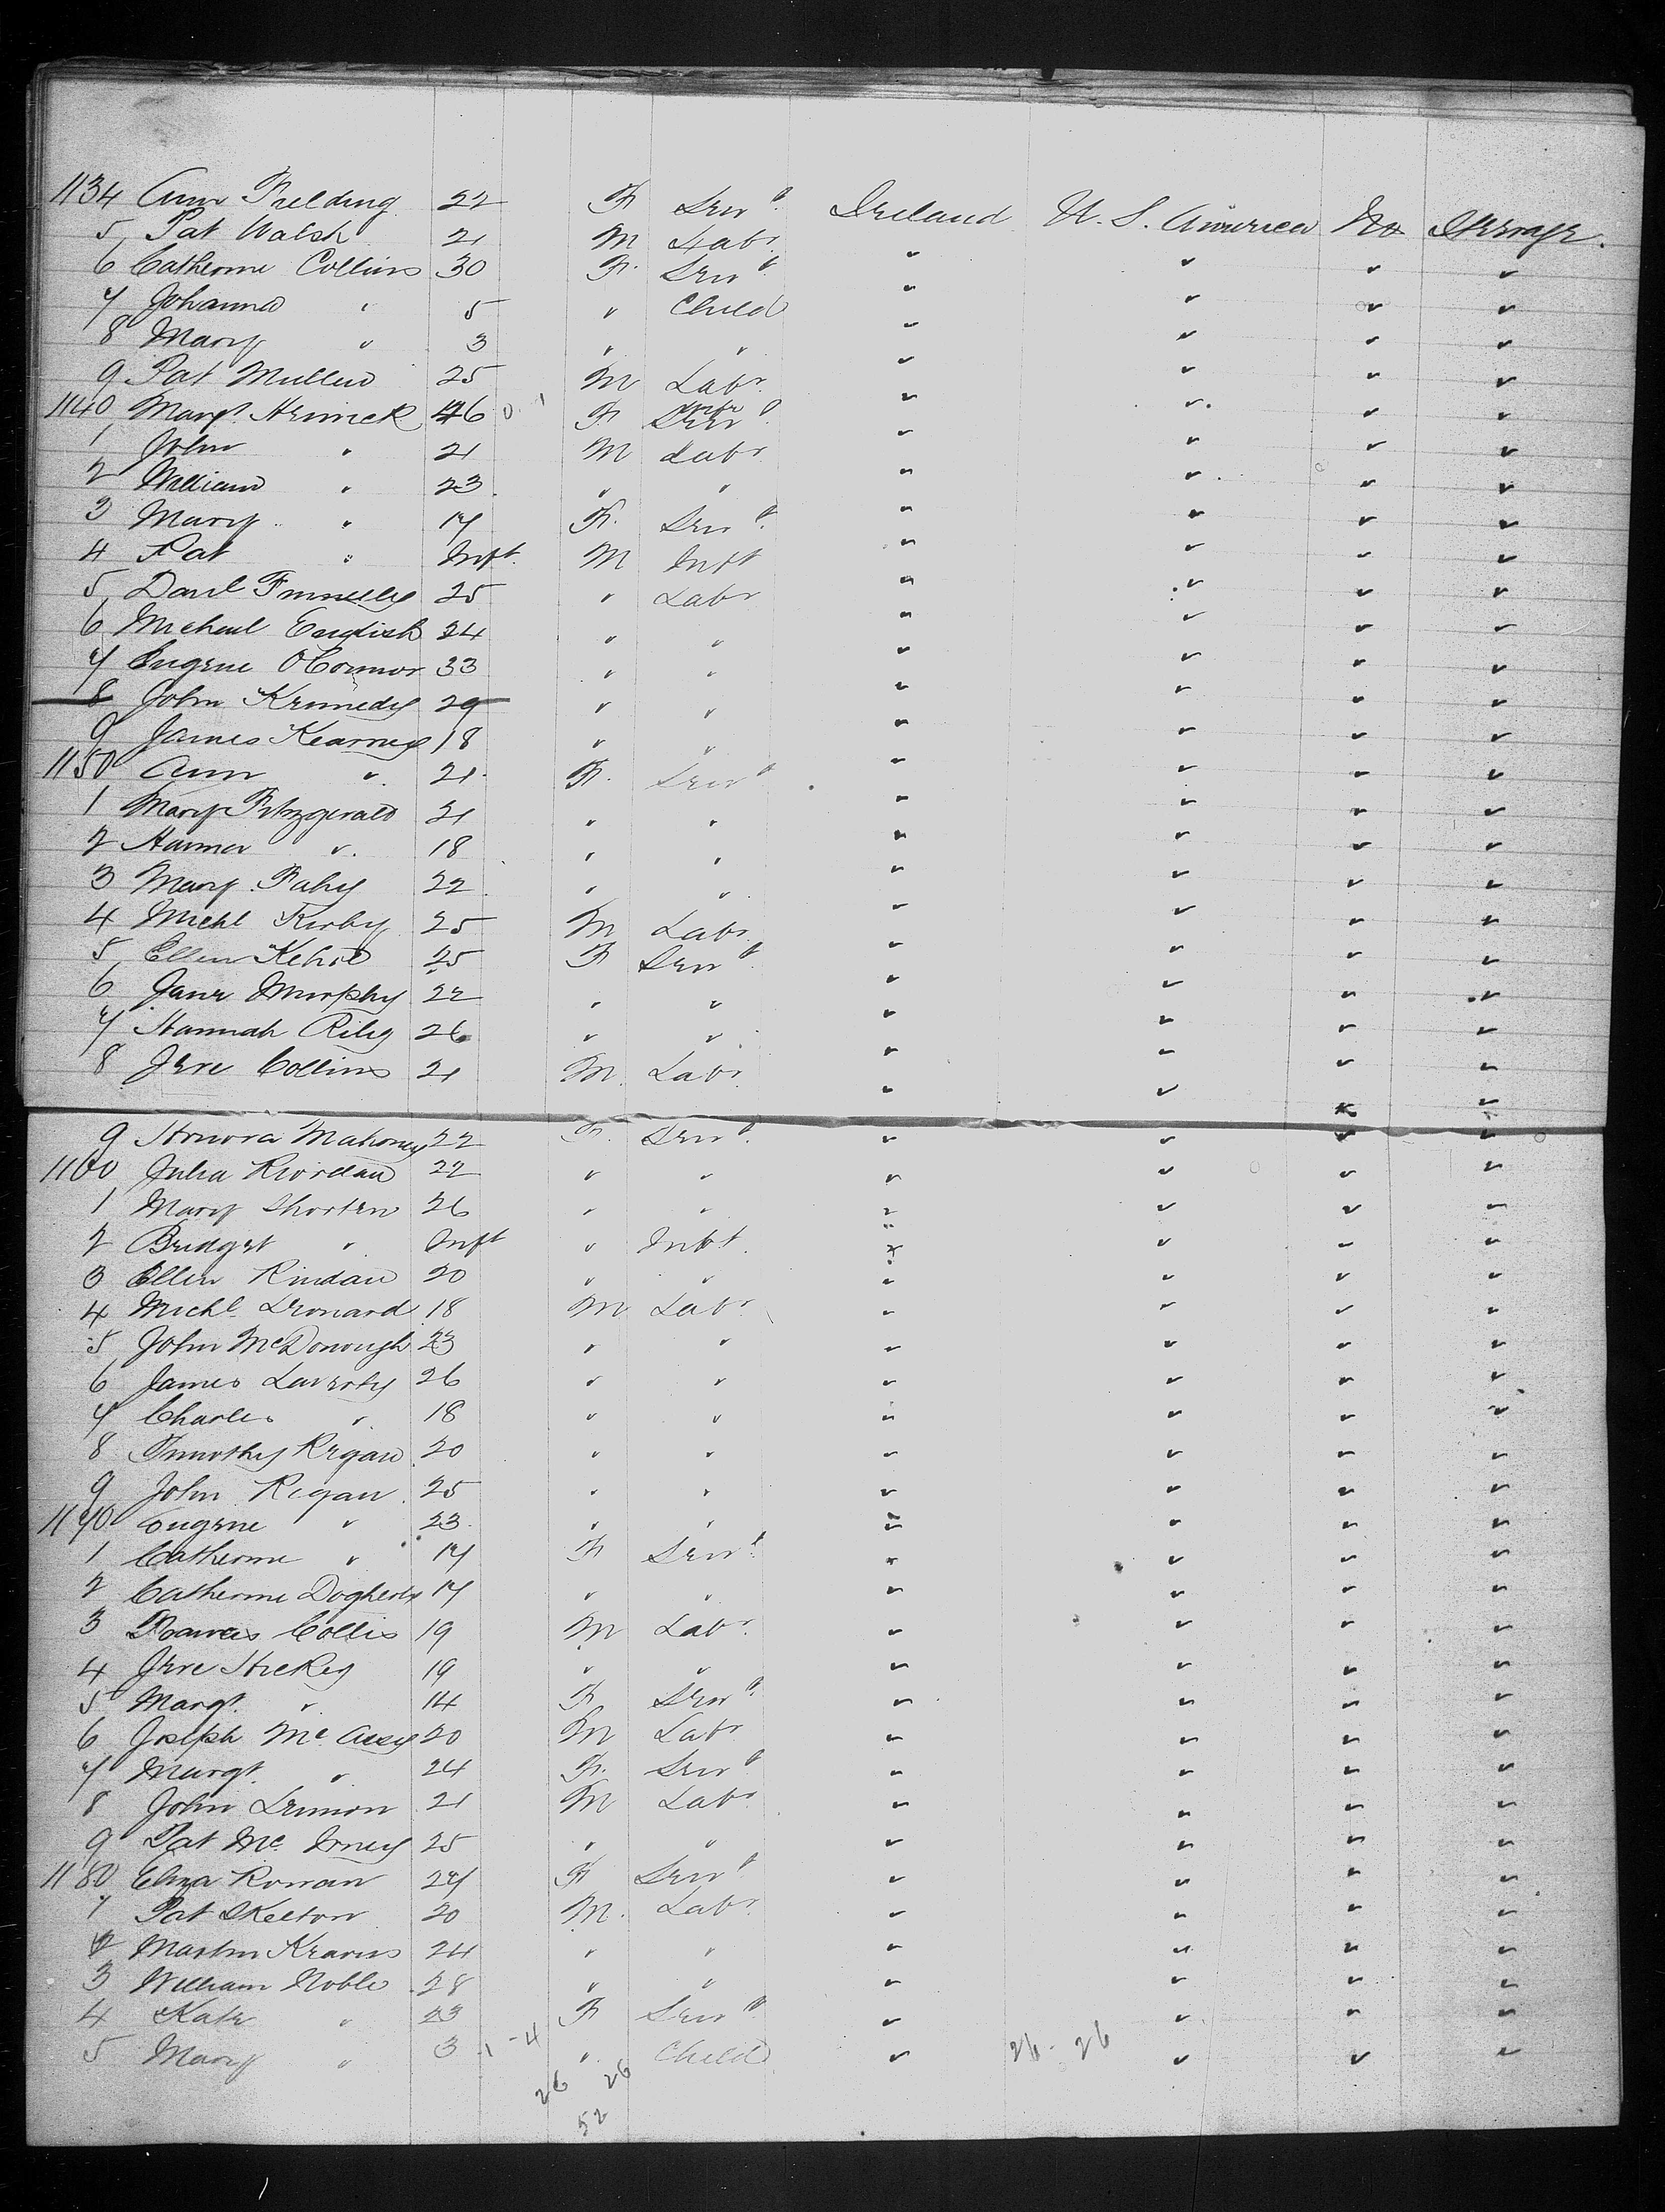 1134 Ann Fielding 22 F Servt. Ireland U. S. America No Steerage.
5 Pat Walsh 21 M Labr. " " " "
6 Catherine Collins 30 F. Servt. " " " "
7 Johanna " 5 " Child " " " "
8 Mary " 3 " " " " " "
9 Pat Mullen 25 M Labr. " " " "
1140 Margt. 46 F wife Servt. " " " "
1 John " 21 M Labr " " " "
2 William " 23 " " " " " "
3 Mary " 17 F. Servt. " " " "
4 Pat " Inft. M Inft " " " "
5 Danl 25 " Labr " " " "
6 Micheal English 24 " " " " " "
7 Eugene O'Connor 33 " " " " " "
8 John Kennedy 29 " " " " " "
9 James Kearney 18 " " " " " "
1150 Ann " 21 F. Servt " " " "
1 Mary Fitzgerald 21 " " " " " "
2 Hanna " 18 " " " " " "
3 Mary Fahy 22 " " " " " "
4 Michl Kirby 25 M Labr. " " " "
5 Ellen Kehoe 25 F Servt. " " " "
6 Jane Murphy 22 " " " " " "
7 Hannah Riley 26 " " " " " "
8 Jere Collins 21 M. Labr. " " " "
9 Honora Mahoney 22 F. Servt. " " " "
1160 Julia Riordan 22 " " " " " "
1 Mary Shorten 26 " " " " " "
2 Bridget " Inft " Inft. " " " "
3 Ellen 20 " " " " " "
4 Michl. Leonard 18 M Labr. " " " "
5 John McDonough 23 " " " " " "
6 James Laverty 26 " " " " " "
7 Charles " 18 " " " " " "
8 Timothy Regan 20 " " " " " "
9 John Regan 25 " " " " " "
1170 Eugene " 23 " " " " " "
1 Catherine " 17 F Servt. " " " "
2 Catherine Dogherty 17 " " " " " "
3 Francis Collis 19 M Labr. " " " "
4 Jere Hickey 19 " " " " " "
5 Margt. " 14 F Servt. " " " "
6 Joseph 20 M Labr " " " "
7 Margt. " 24 F. Servt. " " " "
8 John Lennon 21 M Labr. " " " "
9 Pat 25 " " " " " "
1180 Eliza Rowan 27 F Servt. " " " "
1 Pat Skelton 20 M. Labr. " " " "
2 Martin 24 " " " " " "
3 William Noble 28 " " " " " "
4 Kate " 23 F Servt. " " " "
5 Mary " 3 1 - 4 " Child " 26 - 26 " " "
26 26
52